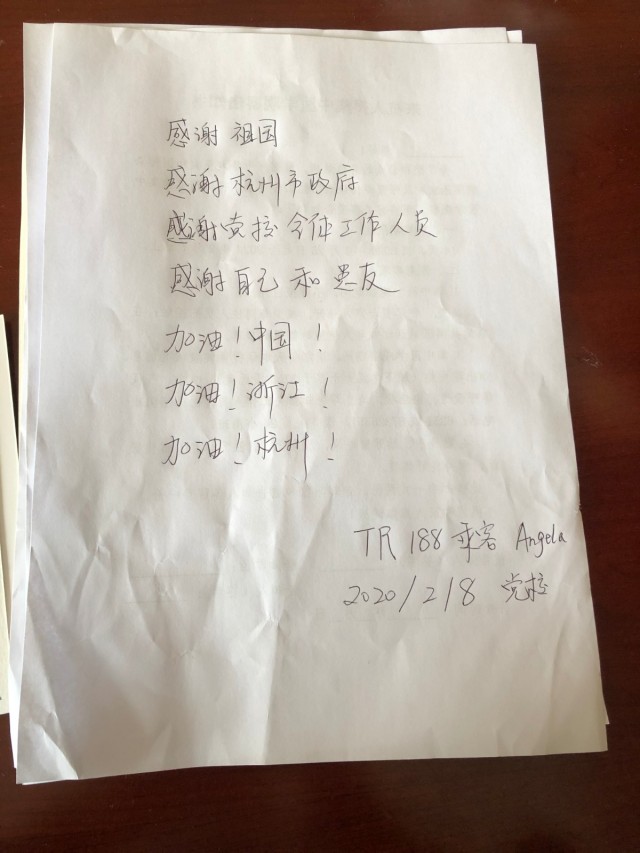 感谢祖国
感谢杭州市政府
感谢党校全体工作人员
感谢自己和 友
加油！中国！
加油！浙江！
加油！杭州！
TR 188 乘客 Angela
2020/2/8 党校